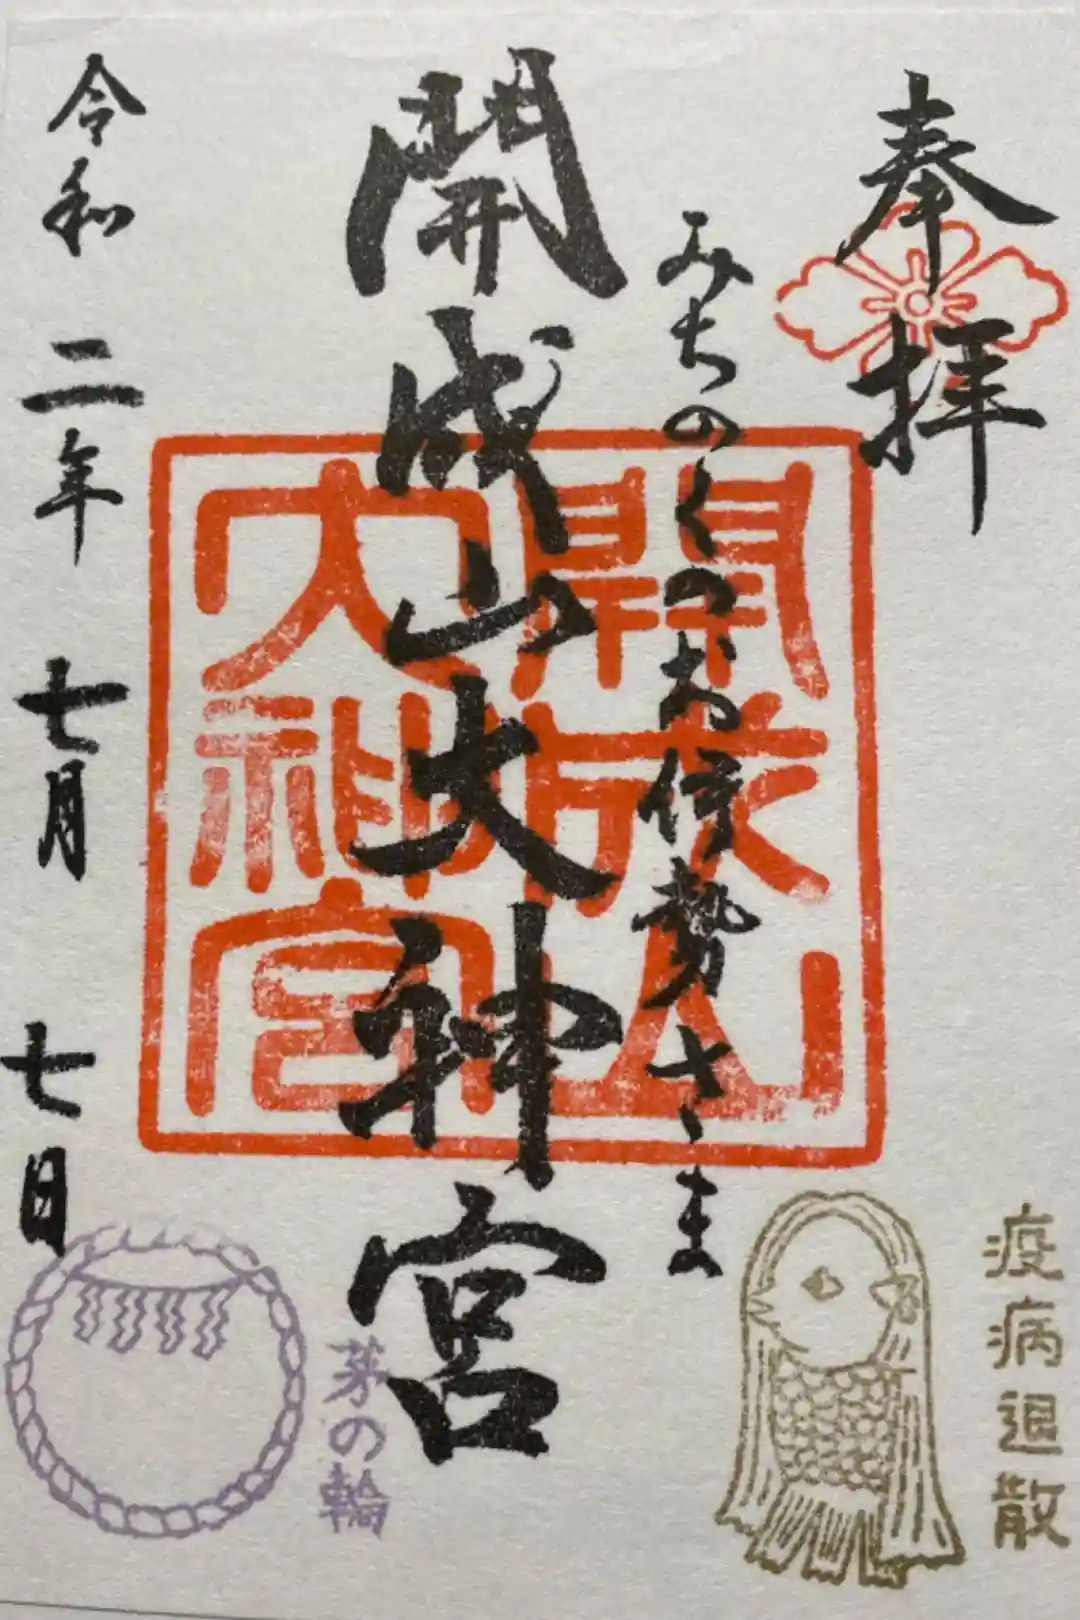 奉拝
みちのくのお伊勢さま
開成山大神宮
開成山
大神宮
令和二年七月七日
疫病退散
茅の輪